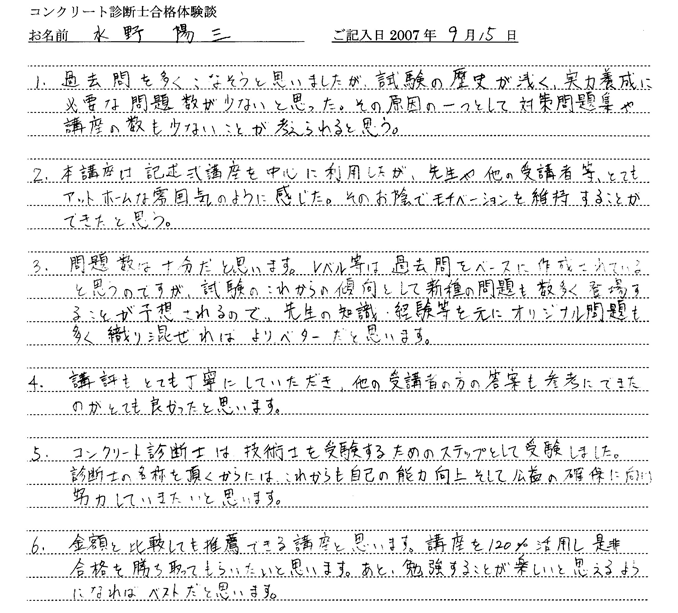 コンクリート診断士合格体験談
お名前 水野 陽三 ご記入日2007年 9月15日
1. 過去問を多くこなそうと思いましたが、試験の歴史が浅く、実力養成に
必要な問題数が少ないと思った。その原因の一つとして対策問題集や
講座の数も少ないことが考えられると思う。
2. 本講座は記述式講座を中心に利用したが、先生や他の受講者等、とても
アットホームな雰囲気のように感じた。そのお陰でモチベーションを維持することが
できたと思う。
3. 問題数は十分だと思います。レベル等は過去問をベースに作成されている
と思うのですが、試験のこれからの傾向として新種の問題も数多く登場す
ることが予想されるので、先生の知識・経験等を元にオリジナル問題も
多く織り混ぜればよりベターだと思います。
4. 講評もとても丁寧にしていただき、他の受講者の方の答案も参考にできた
のがとても良かったと思います。
5. コンクリート診断士は技術士を受験するためのステップとして受験しました。
診断士の名称を頂くからには、これからも自己の能力向上そして公益の確保に向け
努力していきたいと思います。
6. 金額と比較しても推薦できる講座と思います。講座を120%活用し是非
合格を勝ち取ってもらいたいと思います。あと、勉強することが楽しいと思えるよう
になればベストだと思います。